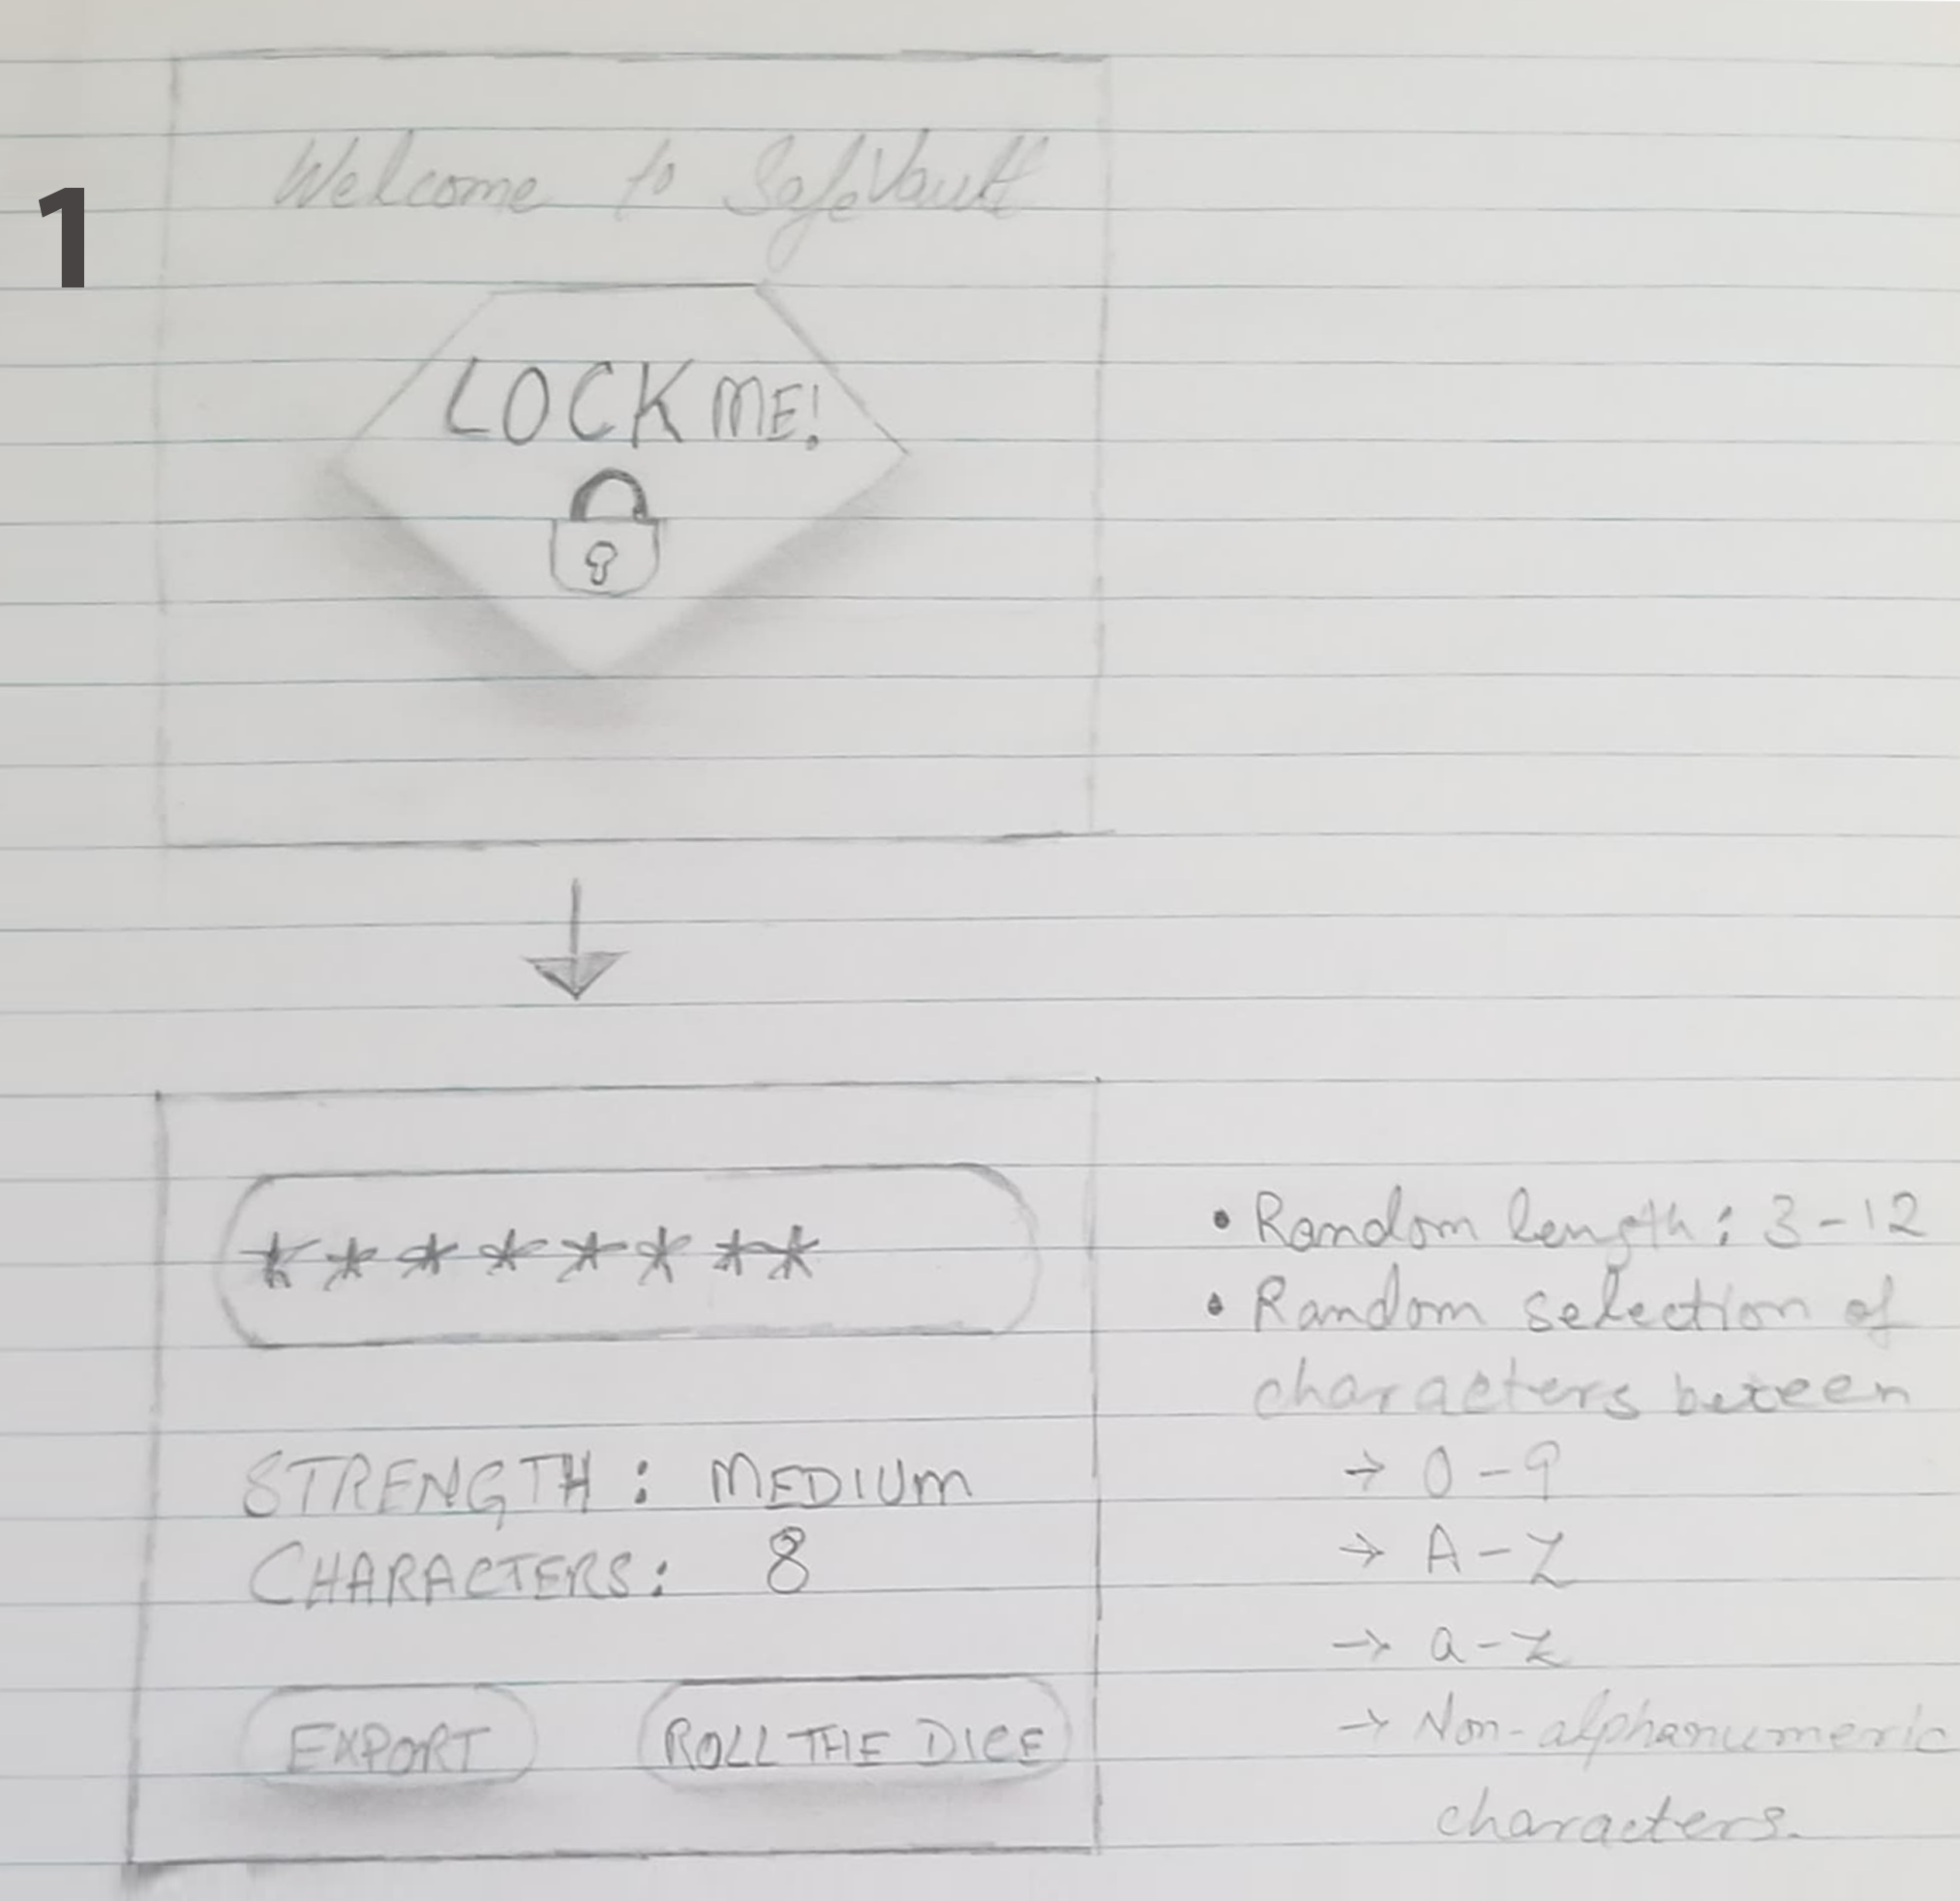 1
Welcome to SafeVault
LOCK ME!
********
STRENGTH : MEDIUM
CHARACTERS: 8
EXPORT
ROLL THE DICE
• Random length: 3-12
• Random selection of
characters beteen
→ 0-9
→ A-Z
→ a-z
→ Non-alphanumeric
characters.